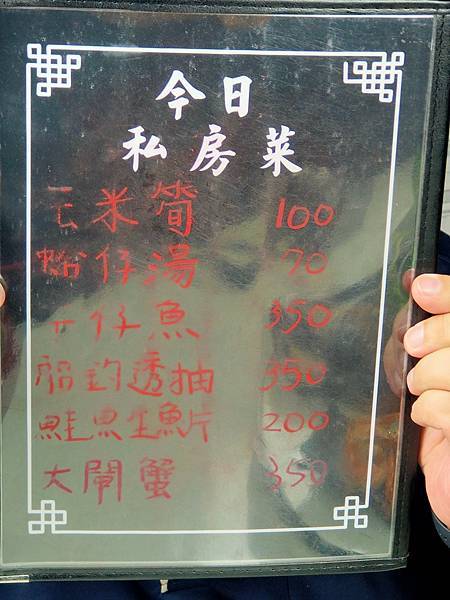 今日
私房菜
玉米筍 100
蛤仔湯 70
仔魚 350
船釣透抽 350
鮭魚生魚片 200
大閘蟹 350